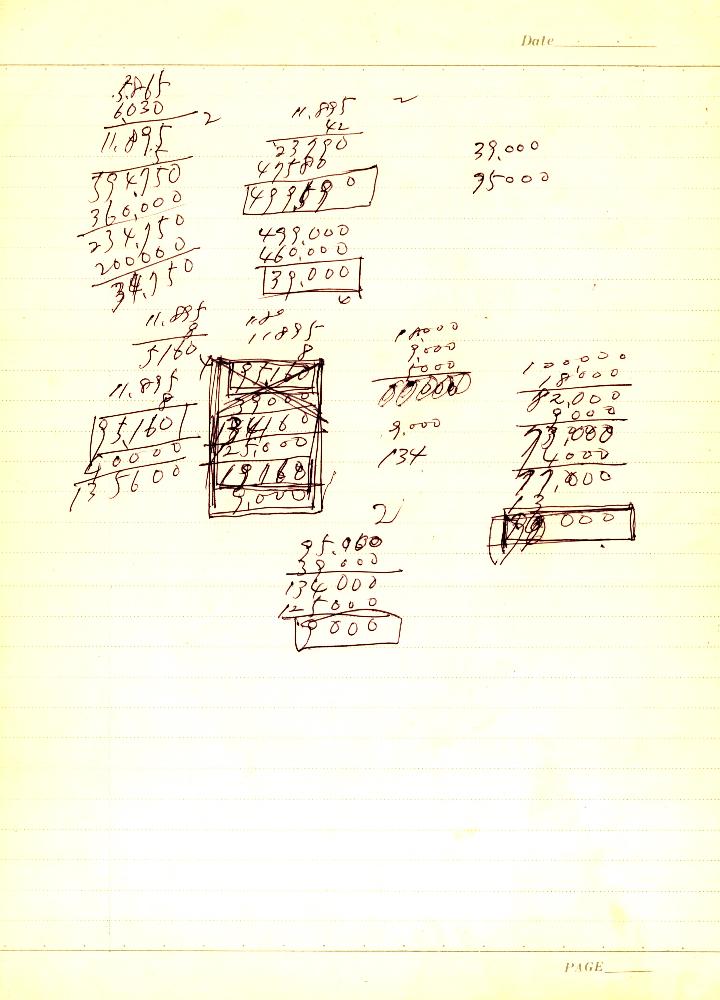 Date
5.865
6.030
2
11.895
5
394.750
360.000
234.750
200000
34.750
11.895
42
23790
47580
499590
499.000
460.000
39.000
39.000
95000
11.895
8
5160
11.895
8
95.160
40000
135600
11.80
11.895
8
95160
39000
134160
125.000
19160
9.000
18.000
9.000
5000
9.000
134
100.000
18.000
82.000
9.000
73.000
000
2
95.000
39000
134000
125000
9000
PAGE